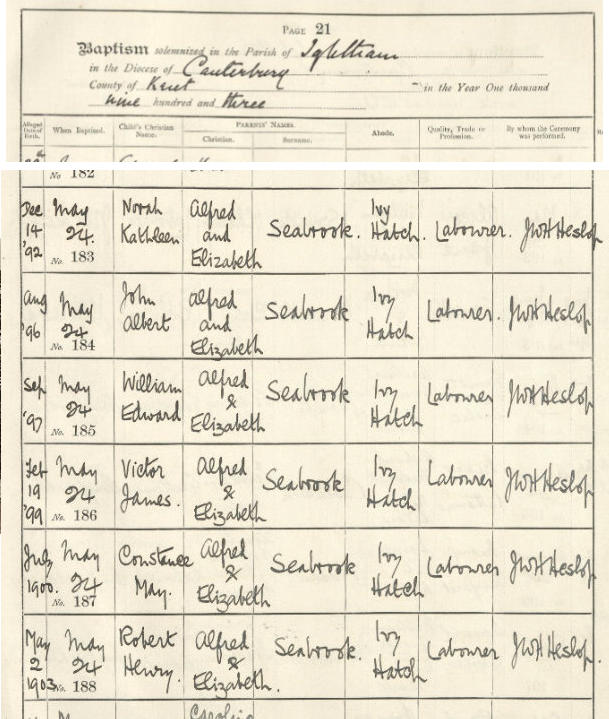 PAGE 21
Baptism solemnized in the Parish of Ightham
in the Diocese of Canterbury
County of Kent in the Year One thousand
nine hundred and three
Alleged Date of Birth. When Baptized. Child's Christian Name. PARENTS' NAMES. Christian. Surname. Abode. Quality, Trade or Profession. By whom the Ceremony was performed.
No. 182
Dec May Norah Alfred Ivy
14 24. Kathleen and Seabrook. Hatch. Labourer. JWH Heslop
'92 No. 183 Elizabeth
Aug May John Alfred Ivy
'96 24 Albert and Seabrook Hatch Labourer. JWH Heslop
No. 184 Elizabeth
Sep May William Alfred Seabrook Ivy Labourer JWH Heslop
'97 24 Edward & Hatch
No. 185 Elizabeth
Feb May Victor Alfred Ivy
19 24 James. & Seabrook Hatch Labourer JWH Heslop
'99 No. 186 Elizabeth
July May Constance Alfred Ivy
1900. 24 May. & Seabrook Hatch Labourer JWH Heslop
No. 187 Elizabeth
May May Robert Alfred Ivy
2 24 Henry. & Seabrook. Hatch Labourer JWH Heslop.
1903 No. 188 Elizabeth.